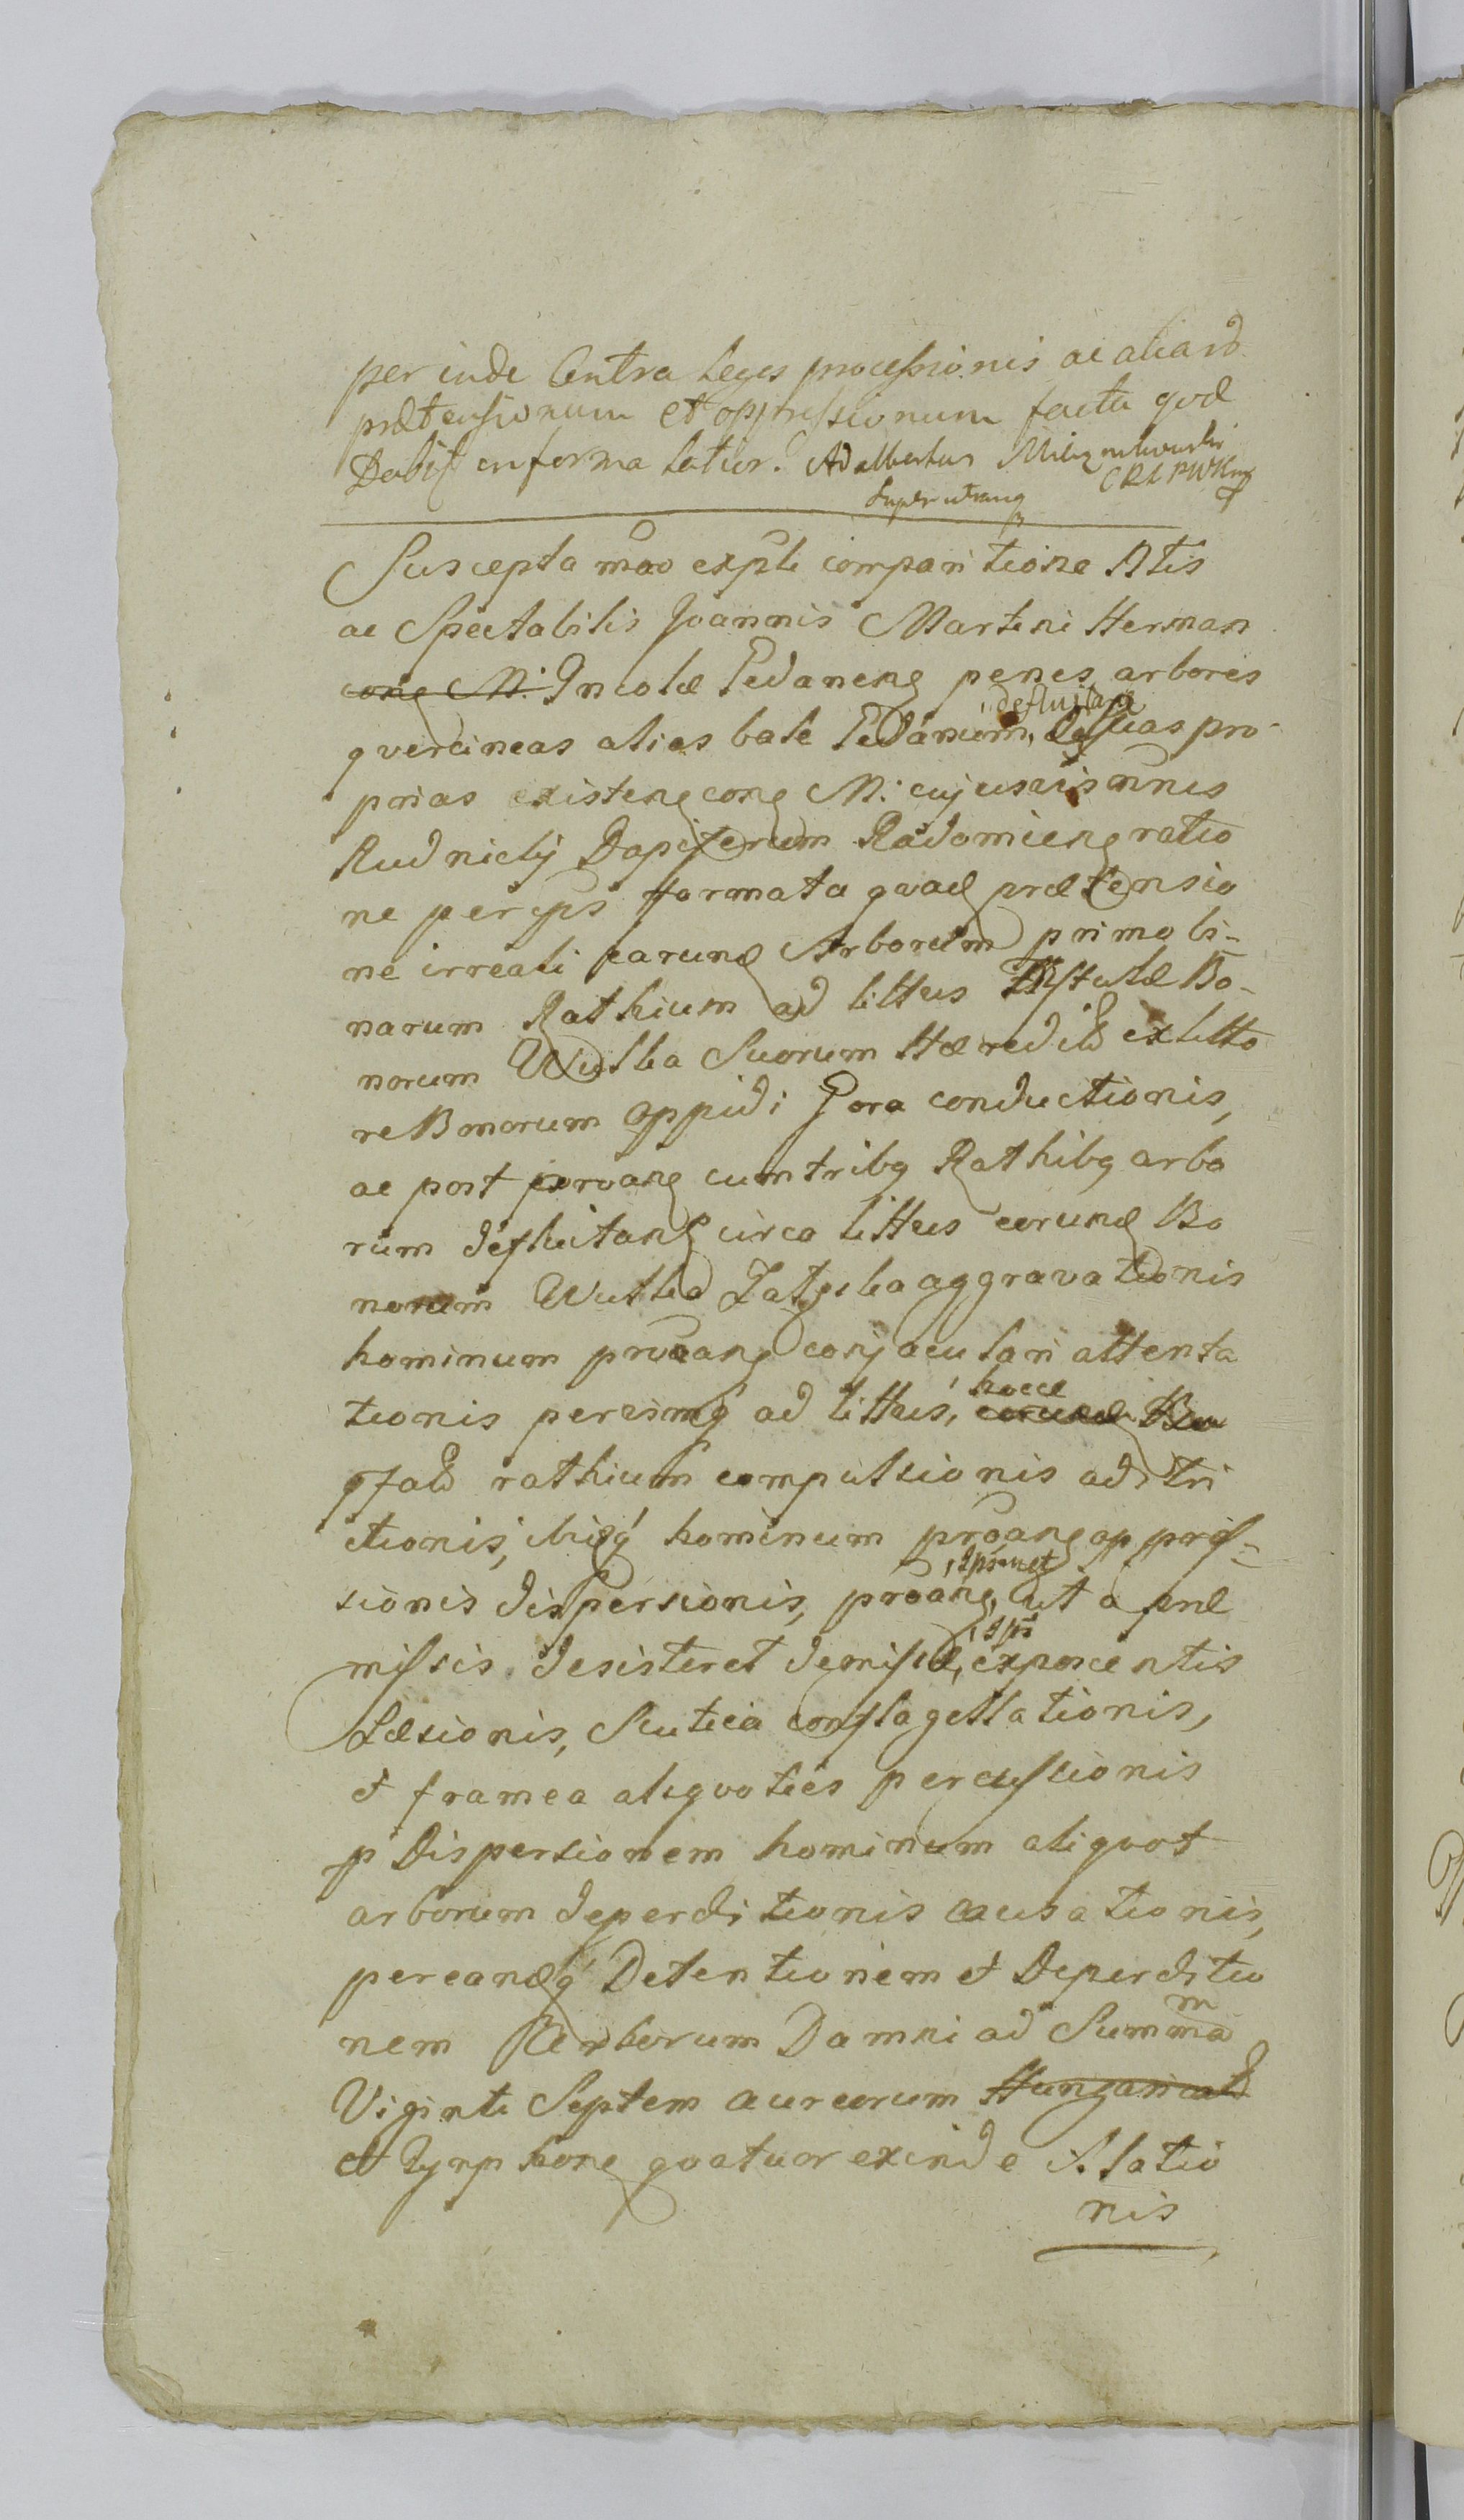 per inde Contra Leges processionis ac aliard
prætensionum et oppressionum factu qvæ
Dabit informa latior. Adalbertus
Super utrunq
Suscepta mao expli comparitione Ntis
ac Spectabilis Joannis Martini Herman
cong M: Incolæ Gedaneng penes arbores
qvercineas alias bale Gedanum, defluitang suas pro-
prias existeng cong M: cujusvis
Rudnicky Dapiferum Radomieng ratio
ne per ips formata qvad prætensio
ne irreali earund Arborum primo bi-
narum Rathium ad littus Vistulæ Bo-
norum Wulka Suorum Hæredild ex litto
re Bonorum Oppidi Gora conductionis,
ac post proang cum tribg Rathibg arbo
rum defluitang circa littus eorund Bo
norum Wulka aggravationis
hominum proang conjaculari attenta
tionis ad littus, hocce eorund Bon
qfald rathium compulsionis adstri
ctionis, hominum proang oppres-
sionis dispersionis, proang, Ipsumet ut a præ
missis desisteret demisse, Ips exposcentis
Læsionis, Scutica conflagellationis,
et framea aliqvoties percussionis
p Dispersionem hominum aliqvot
arborum deperditionis causationis,
pereandq Detentionem et Deperditio
nem Arborum Damni ad Summam
Viginti Septem aureorum Hungaricald
et Tymphong qvatuor exinde Illatio
nis